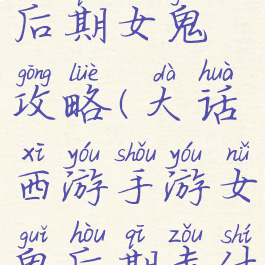 后期女鬼
gōng lüè dà huà
攻略(大话
xī yóu shǒu yóu nǚ
西游手游女
guǐ hòu qī zǒu shí
鬼后期走什